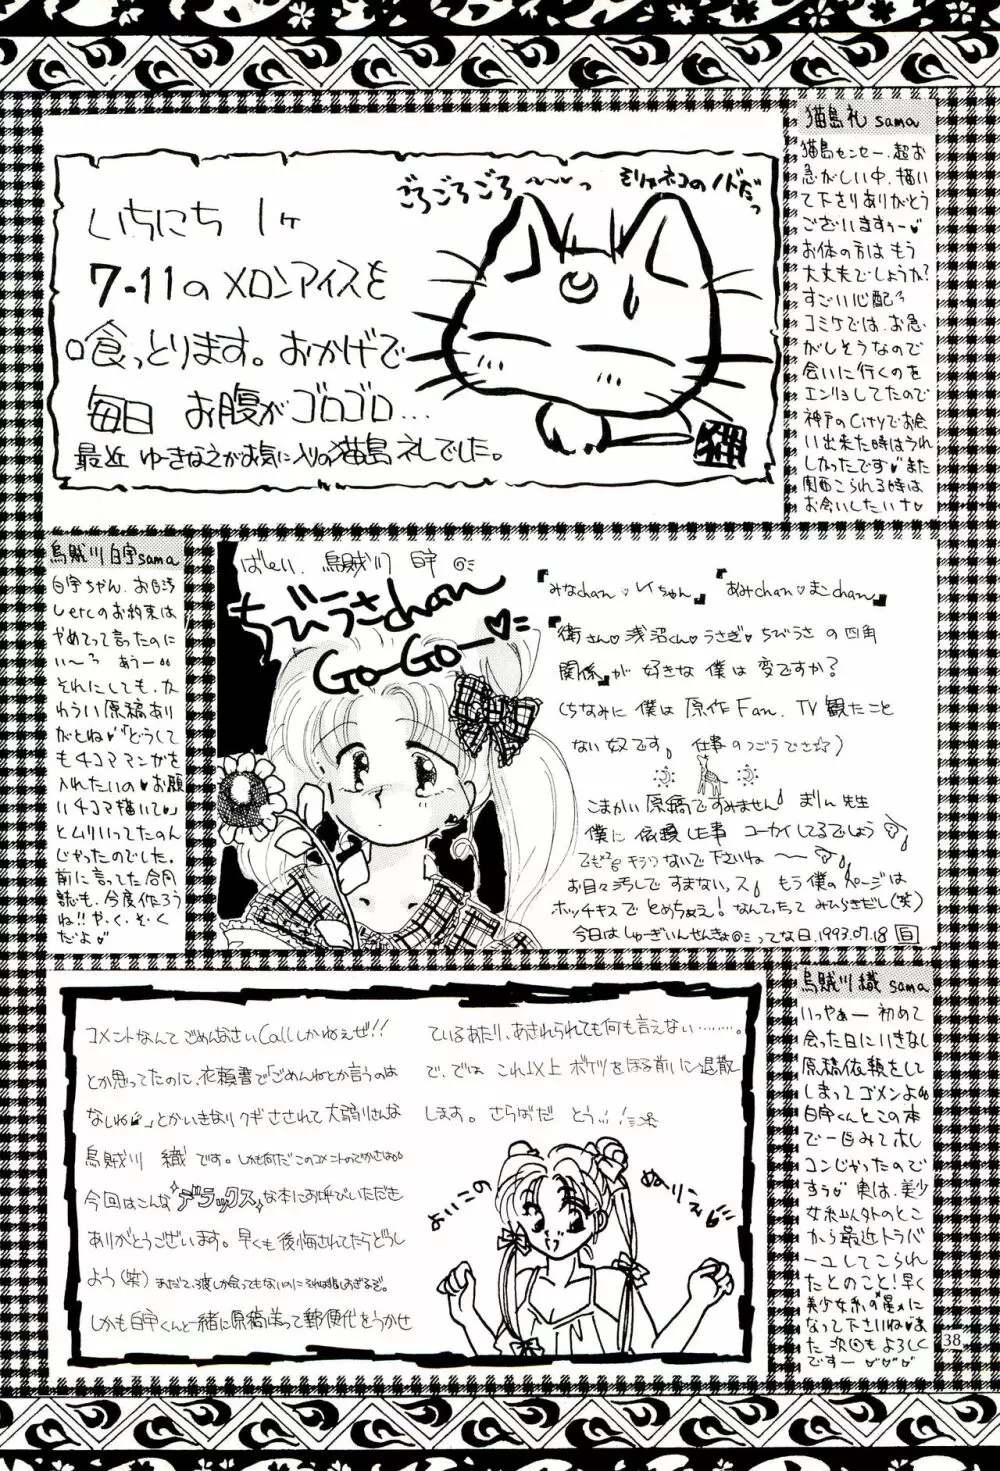 ごろごろごろ〜〜〜っ
いちにち 1ヶ
7-11のメロンアイスを
喰っとります。おかげで
毎日 お腹がゴロゴロ…
最近 ゆーきなえがお気に入りの猫島 礼でした。
猫島 礼 sama
猫島センセー、超お
急がしい中、描い
て下さりありがとう
ございますぅー♥
お体の方は もう
大丈夫でしょうか?
すごい心配
コミケでは、お急
がしそうなので
会いに行くのを
エンリョしてたので
神戸のCityでお会
い出来た時はうれ
しかったです♥また
関西こられる時は
お会いしたいナ♥
烏賊川 白宇 sama
白宇ちゃん、お目汚
しetcのお約束は
やめてって言ったのに
い〜? あぅー
それにしても、か
わうい原稿あり
がとね♥「どうして
も4コママンガを
入れたいの♥お願
い4コマ描いて♥」
とムリいってたのん
じゃったのでした。
前に言ってた合同
誌も、今度作ろう
ね!! や・く・そ・く
だよ♥
ちびうさchan
Go-Go-♥
『みなchan♥レイちゃん』『あみchan♥まこchan』
『衛さん♥浅沼くん♥うさぎ♥ちびうさ の四角
関係』が 好きな 僕は 変ですか?
ちなみに 僕は 原作Fan、TV観たこと
ない奴です。仕事のつごうでさ☆)
こまかい原稿ですみません! まりん先生
僕に 依頼した事 コーカイしてるでしょう
お目々汚しで すまないっス! もう僕のページは
ホッチキスで とめちゃえ! なんてったって みひらきだし(笑)
今日はしゅーぎいんせんきょってな日、1993.07.18 白
コメントなんてごめんなさいCallしかねぇぜ!!
とか思ってたのに、依頼書で「ごめんねとか言うのは
なしね♥」とかいきなりクギさされて大弱りさんな
烏賊川 織 です。しかも何だこのコメントのでかさは
今回はこんな デラックス な本にお呼びいただき
ありがとうございます。早くも後悔されてたらどうし
よう(笑)まだ1て、度しか会ってもないのにそれは悲しすぎるぞ。
しかも白宇くんと一緒に原稿送って郵便代をうかせ
ているあたり、あきれられても何も言えない………。
で、では これ以上 ボケツをほる前に退散
します。さらばだ とうっ!!
よいこの
ぬりえ
烏賊川 織 sama
いっやぁー 初めて
会った日にいきなし
原稿依頼をして
しまってゴメンよぉ
白宇くんとこの本
で一目みてホし
コンじゃったので
すぅ♥ 実は、美少
女系以外のとこ
から最近トラバ
ーユしてこられ
たとのこと! 早く
美少女系の星に
なって下さいね♥ま
た 次回もよろしく
ですー ♥♥♥
38